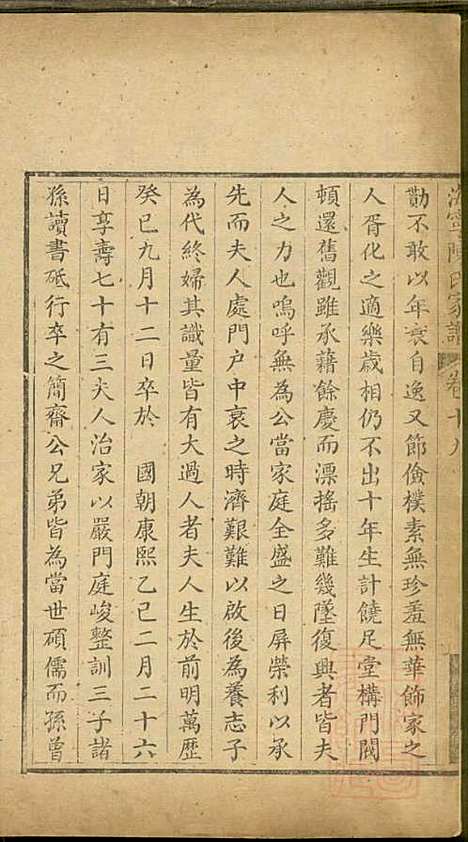 海寧陳氏家譜 卷十八
勤不敢以年衰自逸又節儉樸素無珍羞無華飾家之
人胥化之適樂歲相仍不出十年生計饒足堂構門閥
頓還舊觀雖承藉餘慶而漂搖多難幾墜復興者皆夫
人之力也嗚呼無為公當家庭全盛之日屏榮利以承
先而夫人處門戶中衰之時濟艱難以啟後為養志子
為代終婦其識量皆有大過人者夫人生於前明萬歷
癸巳九月十二日卒於 國朝康熙乙巳二月二十六
日享壽七十有三夫人治家以嚴門庭峻整訓三子諸
孫讀書砥行卒之簡齋公兄弟皆為當世碩儒而孫曾